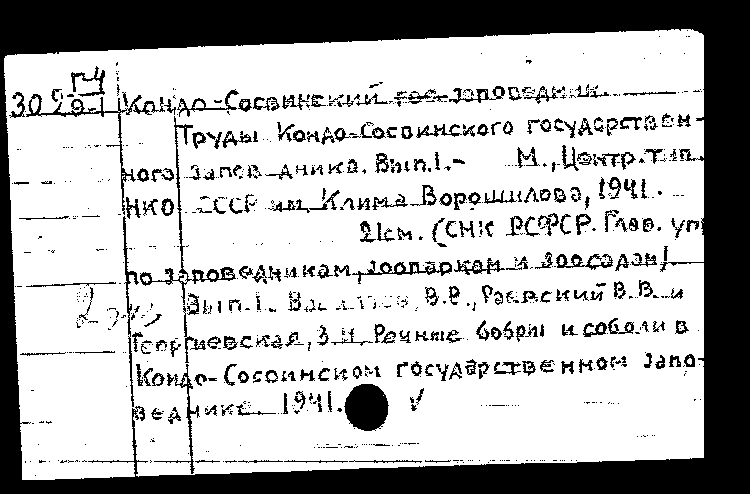 Г-4
302 9-1 Кондо-Сосвинский гос. заповедник.
Труды Кондо-Сосвинского государствен-
ного заповедника. Вып.1.- М., Центр. тип.
НКО СССР им. Клима Ворошилова, 1941.
21см. (СНК РСФСР. Глав. упр
по заповедникам, зоопаркам и зоосадам).
Вып.1. Васильев, В.В., Раевский В.В. и
2 экз
Георгиевская, З.Н. Речные бобры и соболи в
Кондо-Сосвинском государственном запо-
веднике. 1941. ✓